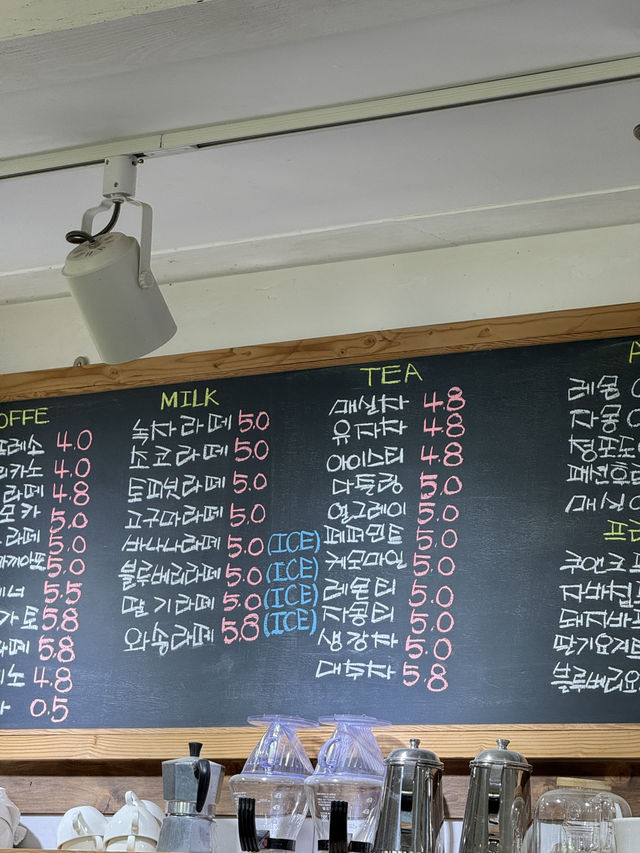 OFFE
프레소 4.0
리카노 4.0
라떼 4.8
모카 5.0
라떼 5.0
5.0
5.5
가토 5.8
라떼 5.8
노 4.8
0.5
MILK
녹차라떼 5.0
초코라떼 5.0
토피넛라떼 5.0
고구마라떼 5.0
바나나라떼 5.0 (ICE)
블루베리라떼 5.0 (ICE)
딸기라떼 5.0 (ICE)
와송라떼 5.8 (ICE)
TEA
매실차 4.8
유자차 4.8
아이스티 4.8
다즐링 5.0
얼그레이 5.0
페퍼민트 5.0
케모마일 5.0
레몬티 5.0
자몽티 5.0
생강차 5.0
대추차 5.8
A
레몽
자몽
청포도
패션후르
매실
프
쿠앤크
자바칩
돼지바
딸기요거트
블루베리요